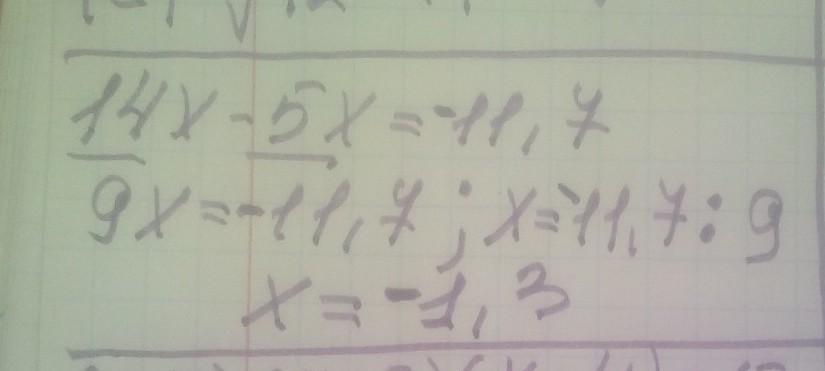 14x - 5x = -11,7
9x = -11,7 ; x = -11,7 : 9
x = -1,3